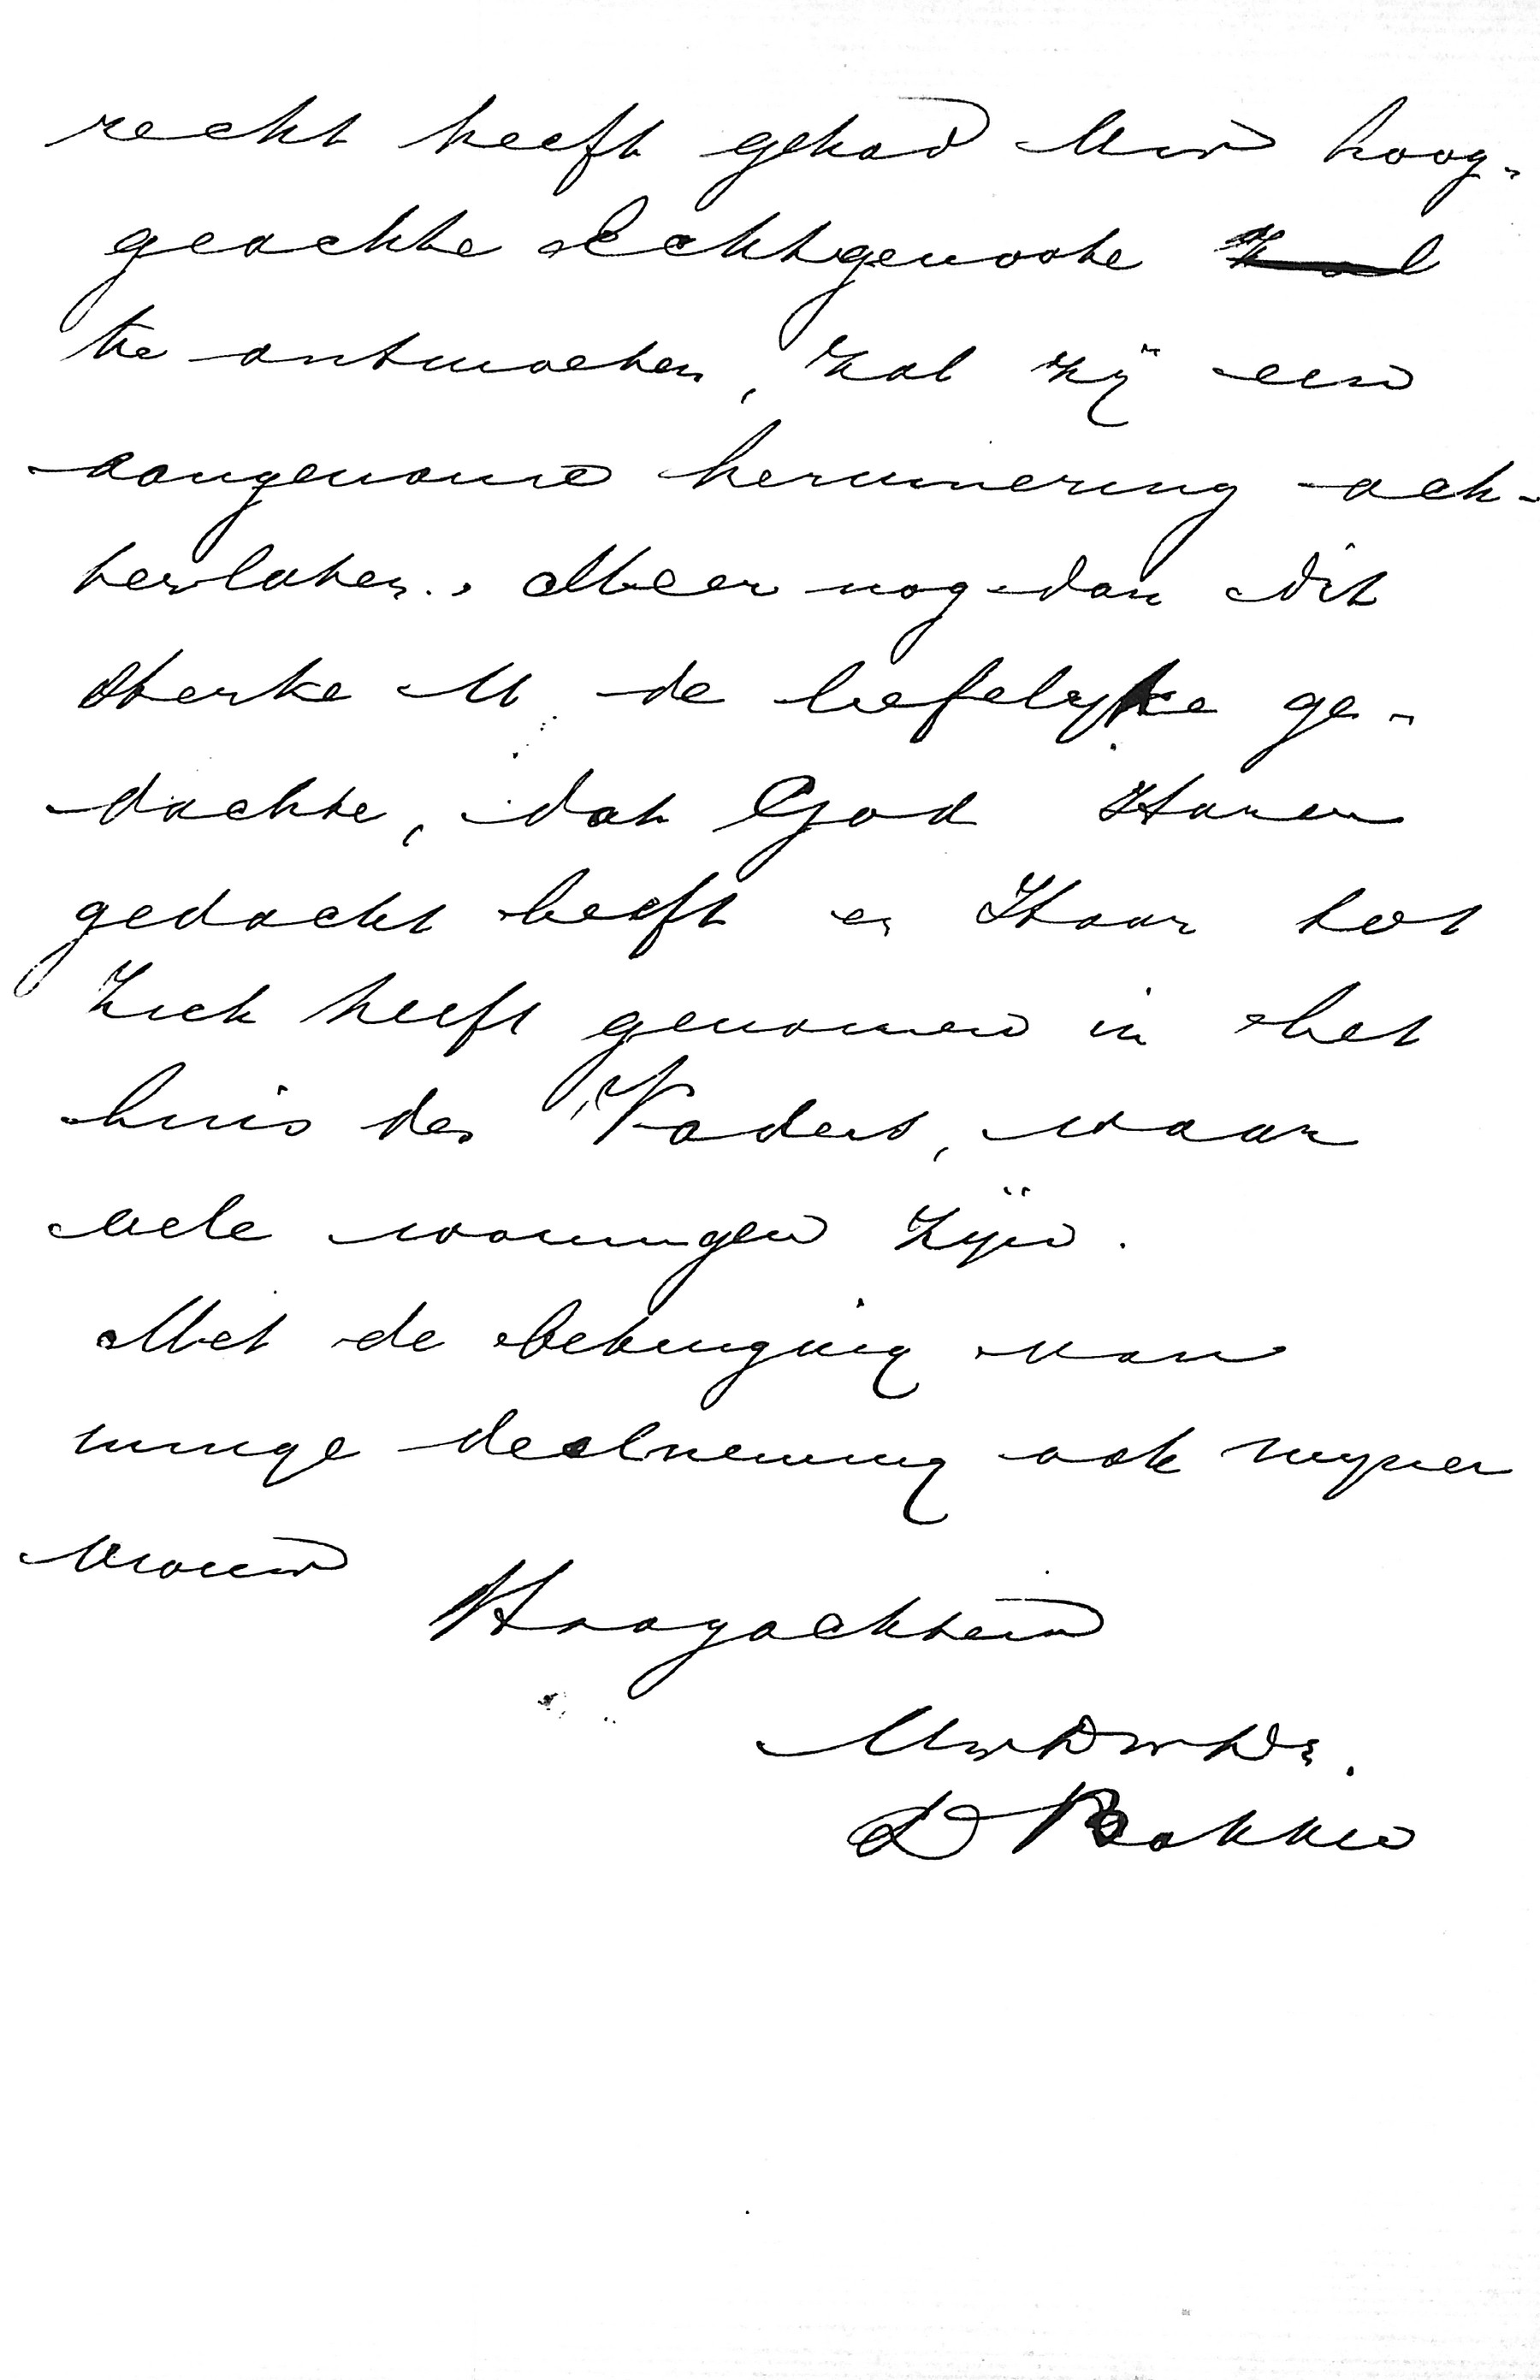 recht heeft gehad Uw hoog-
geachte Echtgenoote zal
te ontmoeten, zal zij een
aangename herinnering ach-
terlaten. Meer nog dan dit
sterke U de liefelijke ge-
dachte, dat God Harer
gedacht heeft en Haar tot
Zich heeft genomen in het
huis des Vaders, waar
vele woningen zijn.
Met de betuiging van
innige deelneming ook mijner
vrouw
Hoogachtend
UwDwDr.
D Bakker